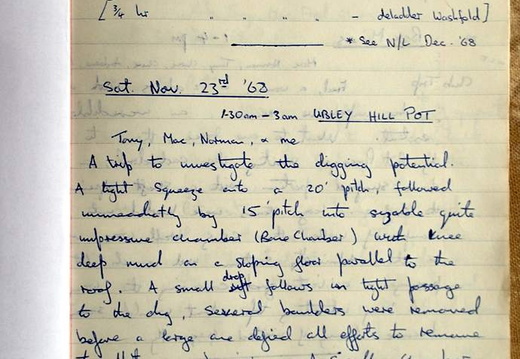 [¾ hr " " " - deladder Washfold]
* See N/L Dec. '68
Sat. Nov. 23rd '68
1-30am - 3am UBLEY HILL POT
Tony, Mac, Norman, & me
A trip to investigate the digging potential.
A tight squeeze onto a 20' pitch, followed
immediately by 15' pitch into sizable quite
impressive chamber (Bone Chamber) with knee
deep mud on a sloping floor parallel to the
roof. A small drop follows in tight passage
to the dig, several boulders were removed
before a large one defied all efforts to remove